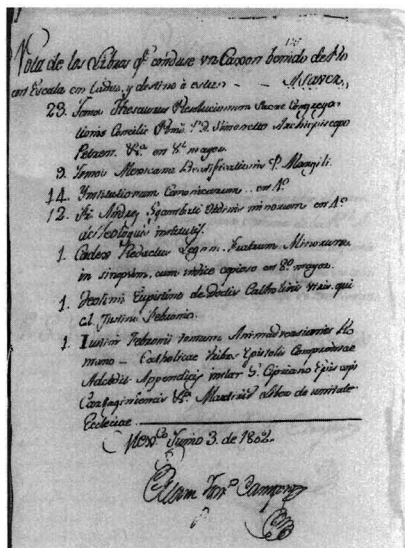 Nota de los Libros qe conduse un Caxon benido de Ro
con Escala en Cadiz, y destino à esta
23. Tomos Thesaurus Resolucionum Sacre Congrega-
tionis Concilii Primi. P. D. Simonetto Archiepiscopo
Petrem. &a en 8º mayor.
9. Tomos Mexicana Beatificationis P. Margili.
14. Ynstitutionum Canonicarum.. en 4º
12. Fr. Andreę Sgambati Ordinis minorum en 4º
de Theologicis institutis.
1. Codex Redactus Legum Fratrum Minorum
in sinopsim, cum indice copioso en 8º mayor.
1. Teotimi Eupistino de Doctis Catholicis Viris, qui
cl. Justino Febronio.
1. Justini Febronii tomum Animadversionis Ro
mano - Catholicae tribus Epistolis Comprendae
Adctedis Appendicis instar S. Cipriano Episcopi
Cartaginiensis &a. Martiris Libro de unitate
Ecclesiae.
Mexco Junio 3. de 1802.
Juan Franco Campos